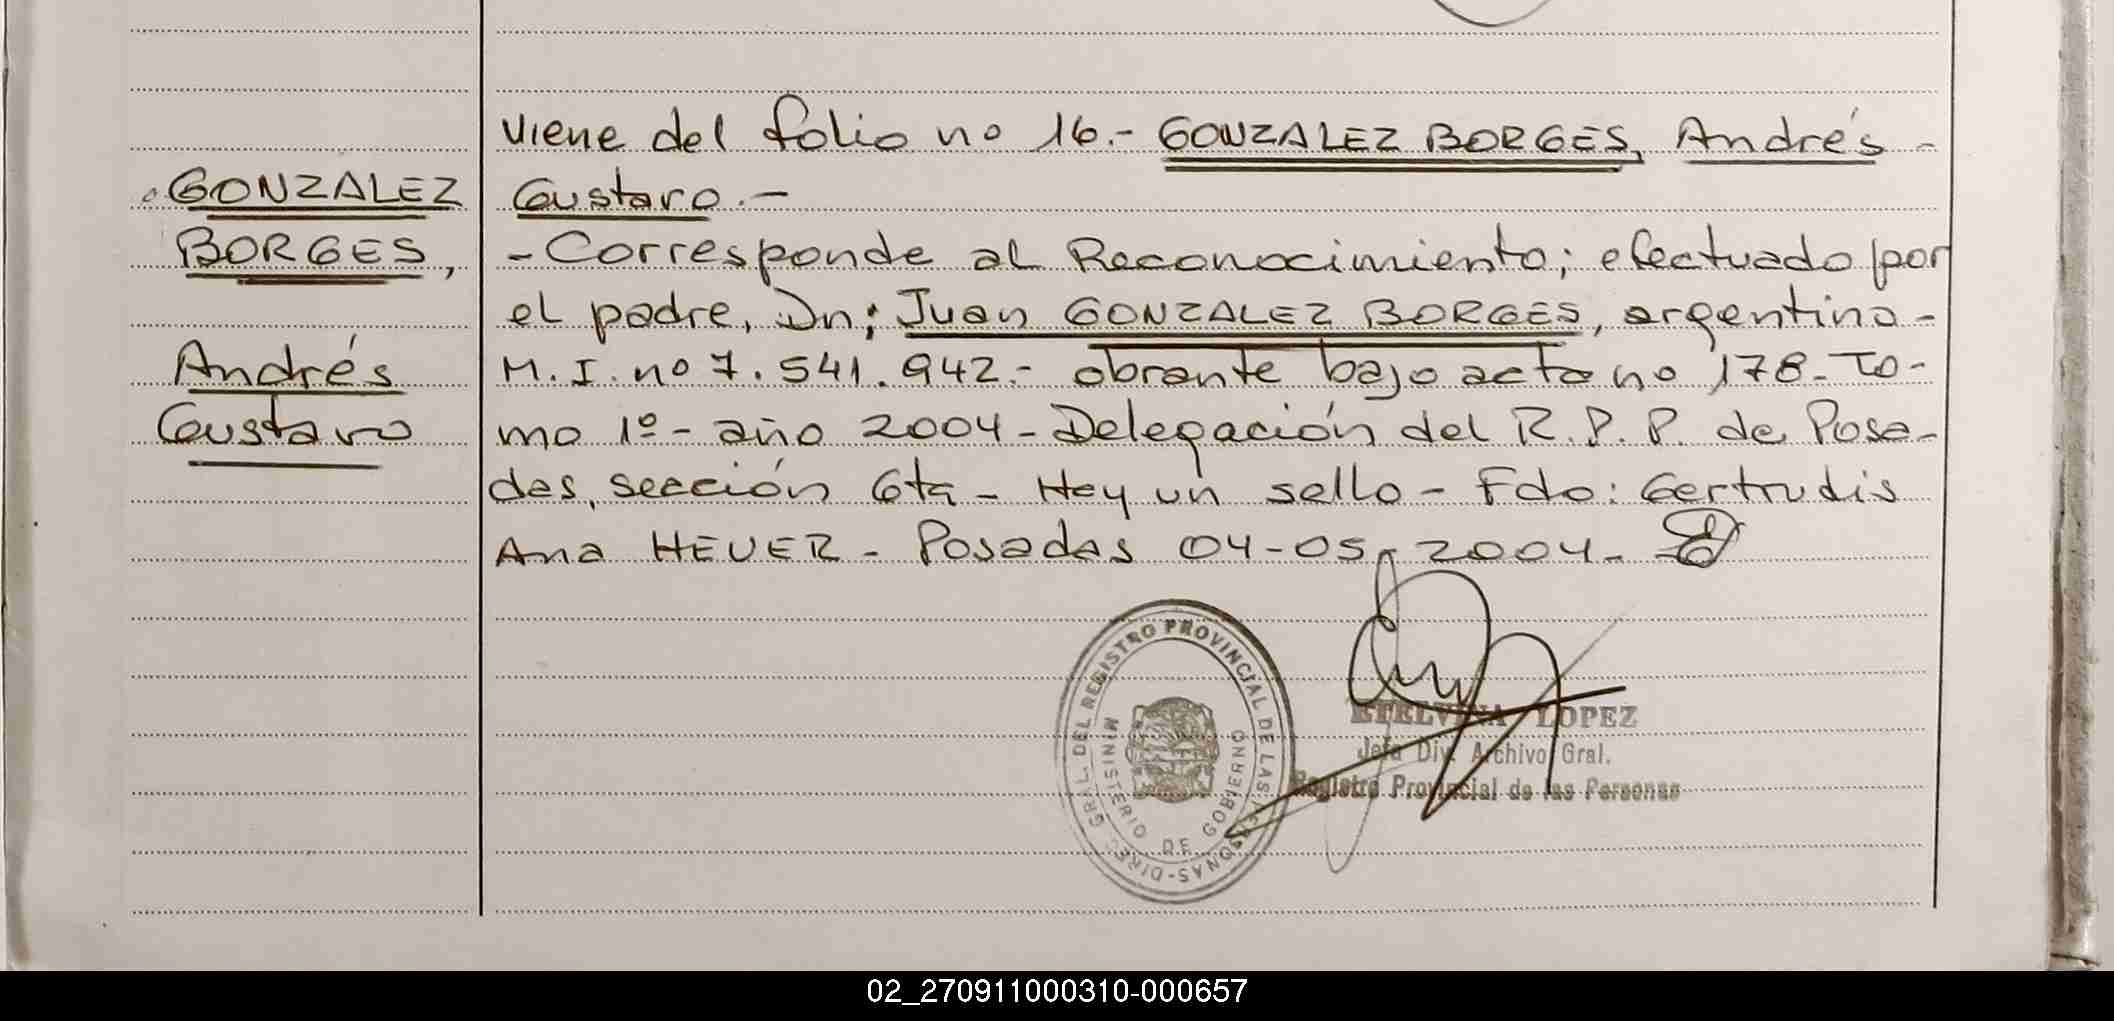 viene del folio no 16.- GONZALEZ BORGES, Andrés -
GONZALEZ
Gustavo.-
BORGES,
- Corresponde al Reconocimiento; efectuado por
el padre, Dn; Juan GONZALEZ BORGES, argentino -
Andrés
M.I. no 7.541.942.- obrante bajo acta no 178- To-
Gustavo
mo 1º- año 2004- Delegación del R.P.P. de Posa-
das, sección 6ta - Hay un sello - Fdo: Gertrudis
Ana HEUER - Posadas 04-05-2004-
DIREC. GRAL. DEL REGISTRO PROVINCIAL DE LAS PERSONAS-
MINISTERIO DE GOBIERNO
ETELVINA LOPEZ
Jefa Div. Archivo Gral.
Registro Provincial de las Personas
02_270911000310-000657